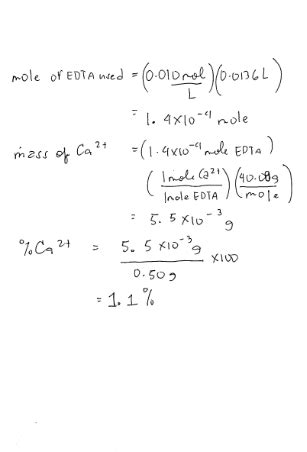 mole of EDTA used = (0.010 mol / L) (0.0136 L)
= 1.4x10⁻⁴ mole
mass of Ca²⁺ = (1.4x10⁻⁴ mole EDTA)
(1 mole Ca²⁺ / 1 mole EDTA) (40.08g / mole)
= 5.5x10⁻³ g
% Ca²⁺ = 5.5x10⁻³ g / 0.50g x100
= 1.1%